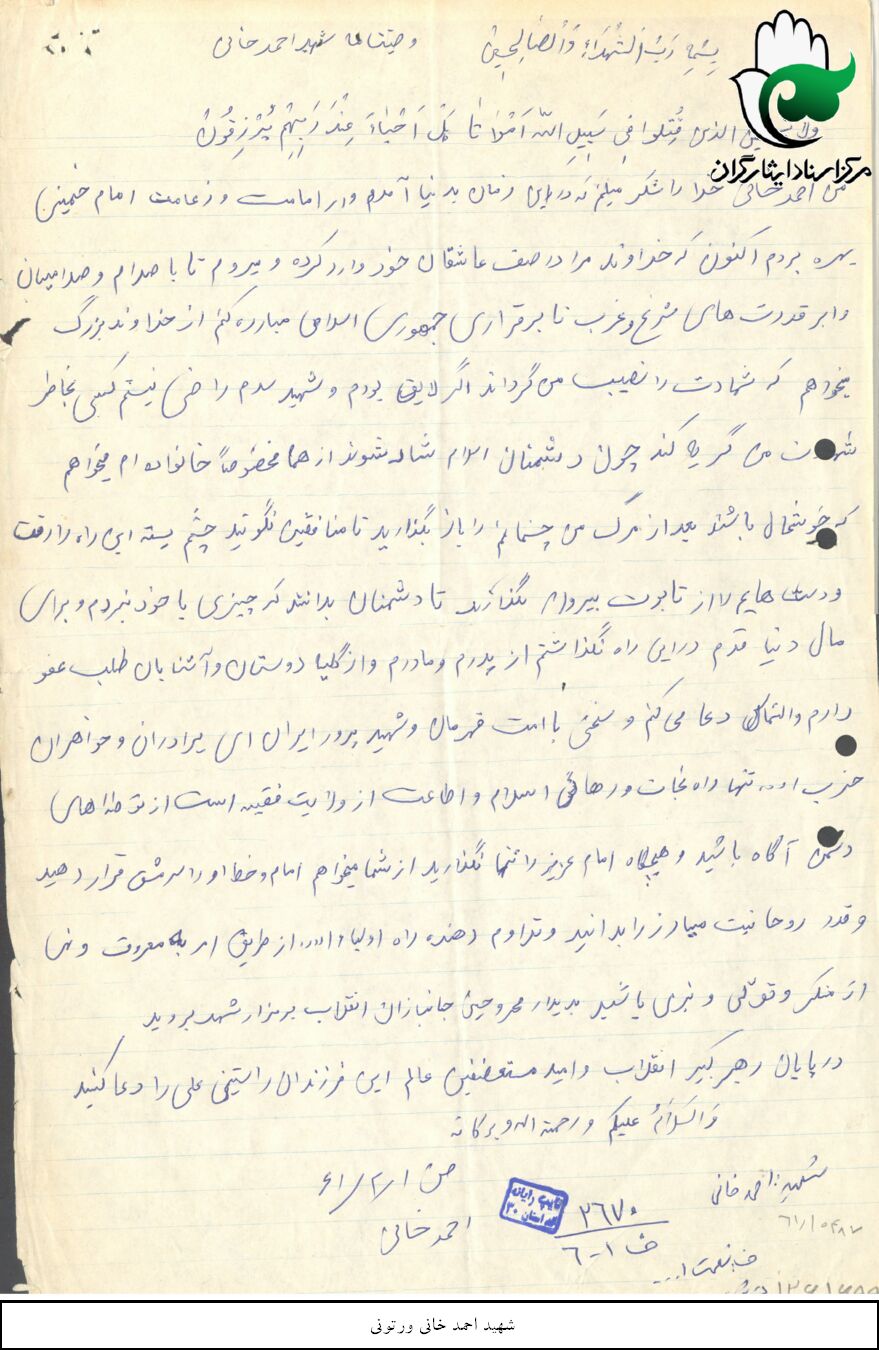 بِسْمِ رَبِّ الشُّهَداءِ وَ الصّالِحینَ وصیتنامه شهید احمد خانی
مرکز اسناد ایثارگران
ولا الذین قُتِلوا فی سَبیلِ اللّه اَمْواتا بَل اَحْیاءَ عِنْدَ رَبِّهِم یُرْزَقُونَ
من احمد خانی خدا را شکر میکنم که در این زمان بدنیا آمدم و از امامت و زعامت امام خمینی
بهره بردم اکنون که خداوند مرا در صف عاشقان خود وارد کرده و میروم تا با صدام و صدامیان
و ابرقدرت های شرق و غرب تا برقراری جمهوری اسلامی مبارزه کنم از خداوند بزرگ
میخواهم که شهادت را نصیب من گرداند اگر لایق بودم و شهید شدم راضی نیستم کسی بخاطر
شهادت من گریه کند چون دشمنان اسلام شاد میشوند از همه مخصوصاً خانواده ام میخواهم
که خوشحال باشند بعد از مرگ من چشمانم را باز بگذارید تا منافقین نگویند چشم بسته این راه را رفت
و دست هایم را از تابوت بیرون بگذارید تا دشمنان بدانند که چیزی با خود نبردم و برای
مال دنیا قدم در این راه نگذاشتم از پدرم و مادرم و از کلیه دوستان و آشنایان طلب عفو
دارم و التماس دعا می کنم و سخنی با امت قهرمان و شهید پرور ایران ای برادران و خواهران
حزب ا... تنها راه نجات و رهائی اسلام و اطاعت از ولایت فقیه است از توطئه های
دشمن آگاه باشید و هیچگاه امام عزیز را تنها نگذارید از شما میخواهم امام و خط او را سرمشق قرار دهید
و قدر روحانیت مبارز را بدانید و تداوم دهنده راه اولیاء ا... از طریق امر به معروف و نهی
از منکر و تولی و تبری باشید بدیدار مجروحین جانبازان انقلاب بر مزار شهد بروید
در پایان رهبر کبیر انقلاب و امید مستضعفین عالم این فرزندان راستین علی را دعا کنید
وَالسَّلامُ علیکم و رحمته اله و برکاته
۶۱/۲/۱
احمد خانی
شهید احمد خانی
۲۶۷۰
ف ۱-۶
شهید احمد خانی ورتونی